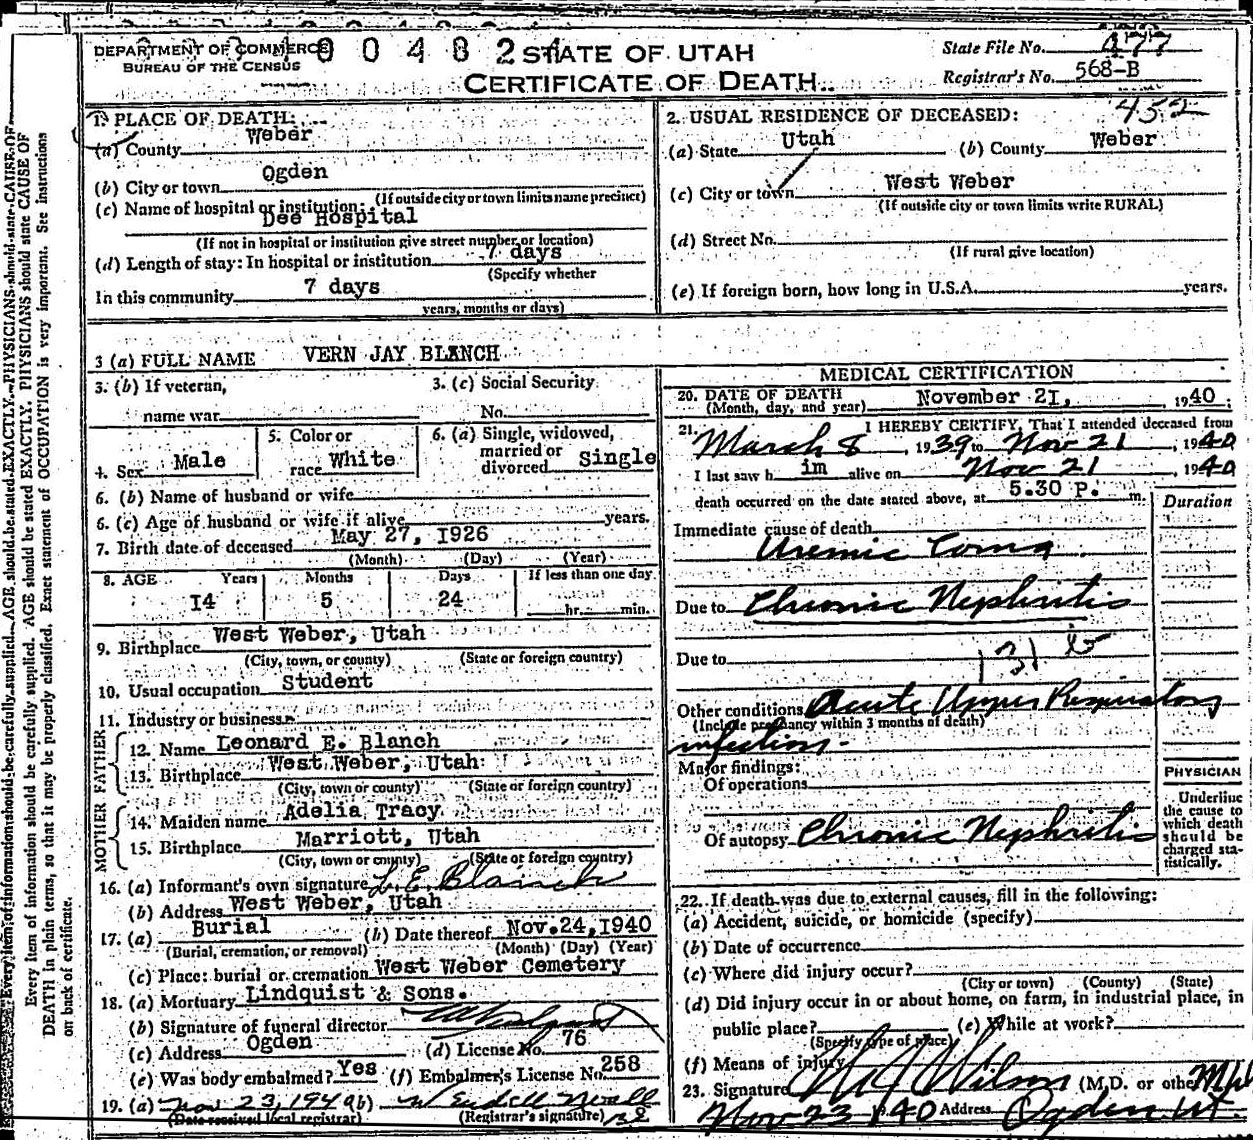 DEPARTMENT OF COMMERCE
BUREAU OF THE CENSUS
STATE OF UTAH
CERTIFICATE OF DEATH
State File No. 477
Registrar's No. 568-B
432
1. PLACE OF DEATH:
(a) County Weber
(b) City or town Ogden
(If outside city or town limits name precinct)
(c) Name of hospital or institution:
Dee Hospital
(If not in hospital or institution give street number or location)
(d) Length of stay: In hospital or institution 7 days
(Specify whether
In this community 7 days
years, months or days)
2. USUAL RESIDENCE OF DECEASED:
(a) State Utah (b) County Weber
(c) City or town West Weber
(If outside city or town limits write RURAL)
(d) Street No.
(If rural give location)
(e) If foreign born, how long in U.S.A. years.
3 (a) FULL NAME VERN JAY BLANCH
3. (b) If veteran,
name war
3. (c) Social Security
No.
4. Sex Male
5. Color or
race White
6. (a) Single, widowed,
married or
divorced Single
6. (b) Name of husband or wife
6. (c) Age of husband or wife if alive years.
7. Birth date of deceased May 27, 1926
(Month) (Day) (Year)
8. AGE Years Months Days If less than one day
14 5 24 hr. min.
9. Birthplace West Weber, Utah
(City, town, or county) (State or foreign country)
10. Usual occupation Student
11. Industry or business
FATHER
12. Name Leonard E. Blanch
13. Birthplace West Weber, Utah
(City, town or county) (State or foreign country)
MOTHER
14. Maiden name Adelia Tracy
15. Birthplace Marriott, Utah
(City, town or county) (State or foreign country)
16. (a) Informant's own signature L. E. Blanch
(b) Address West Weber, Utah
17. (a) Burial (b) Date thereof Nov. 24, 1940
(Burial, cremation, or removal) (Month) (Day) (Year)
(c) Place: burial or cremation West Weber Cemetery
18. (a) Mortuary Lindquist & Sons.
(b) Signature of funeral director
(c) Address Ogden (d) License No. 76
(e) Was body embalmed? Yes (f) Embalmer's License No. 258
19. (a) Nov 23, 1940 (b)
(Date received local registrar) (Registrar's signature)
MEDICAL CERTIFICATION
20. DATE OF DEATH
(Month, day, and year) November 21, 1940
21. I HEREBY CERTIFY, That I attended deceased from
March 8, 1939 to Nov 21, 1940
I last saw h im alive on Nov 21 1940
death occurred on the date stated above, at 5.30 P. m.
Duration
Immediate cause of death
Uremic Coma
Due to Chronic Nephritis
Due to 131
Other conditions Acute Upper Respiratory
(Include pregnancy within 3 months of death)
infection.
Major findings:
Of operations
Of autopsy Chronic Nephritis
PHYSICIAN
Underline
the cause to
which death
should be
charged sta-
tistically.
22. If death was due to external causes, fill in the following:
(a) Accident, suicide, or homicide (specify)
(b) Date of occurrence
(c) Where did injury occur?
(City or town) (County) (State)
(d) Did injury occur in or about home, on farm, in industrial place, in
public place? (e) While at work?
(Specify type of place)
(f) Means of injury
23. Signature Wilson (M.D. or other) M.D.
Nov 23 1940 Address Ogden Ut.
Every item of information should be carefully supplied. AGE should be stated EXACTLY. PHYSICIANS should state CAUSE OF
DEATH in plain terms, so that it may be properly classified. Exact statement of OCCUPATION is very important. See instructions
on back of certificate.